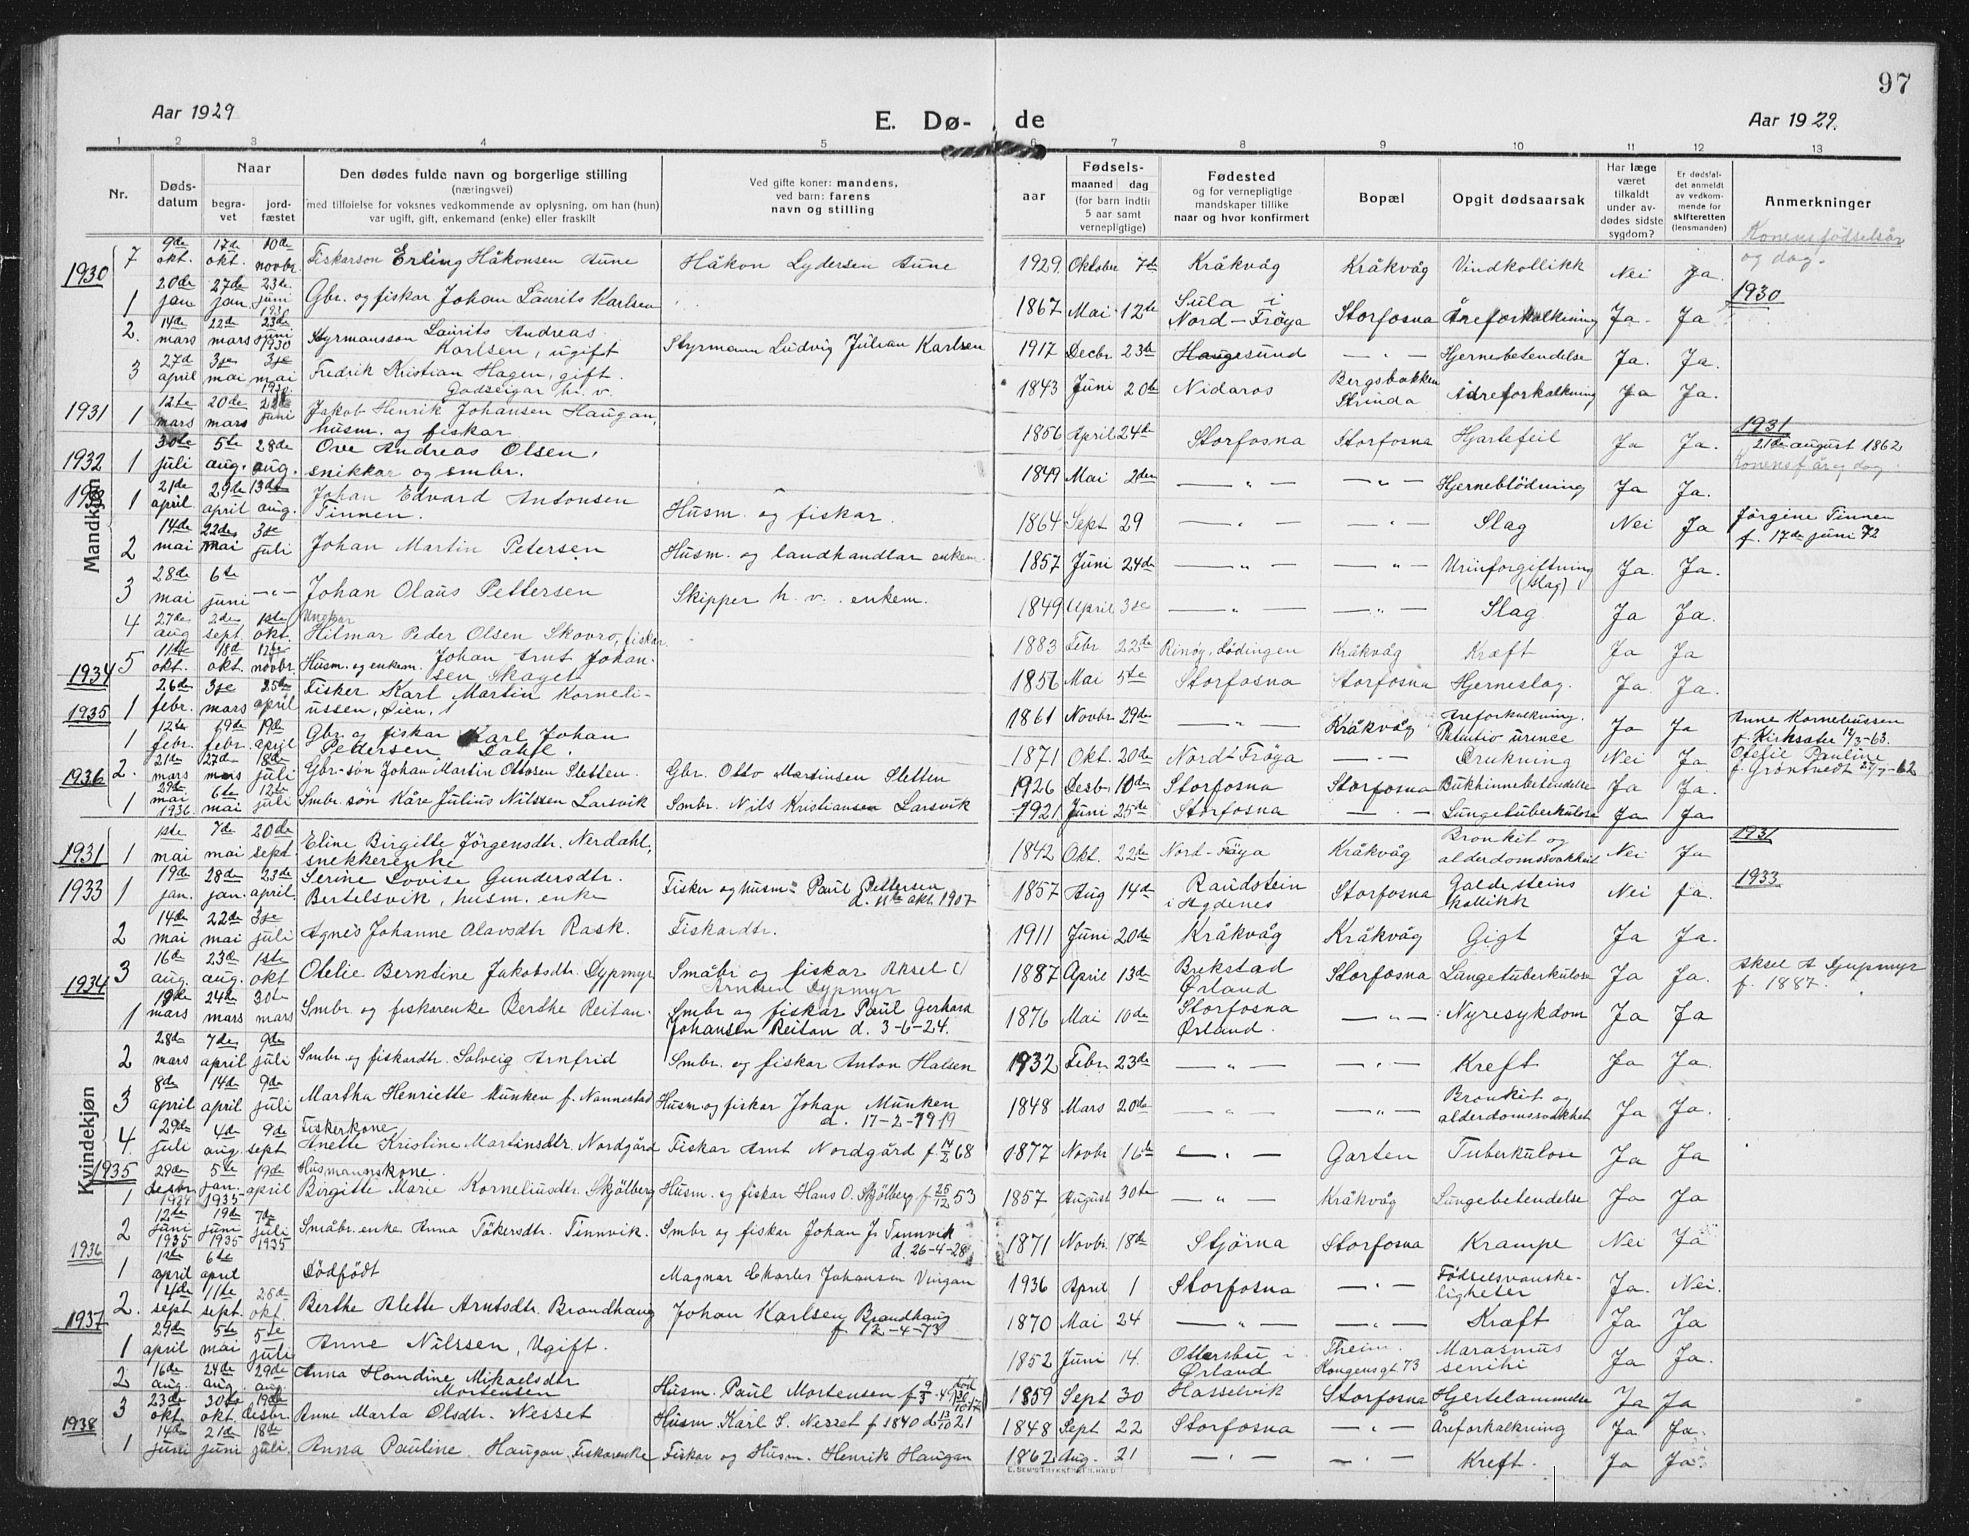 97
Aar 1929 E. Dø- de Aar 1929.
1 2 3 4 5 6 7 8 9 10 11 12 13
Nr. Døds-datum Naar begra-vet jord-fæstet Den dødes fulde navn og borgerlige stilling (næringsvei) med tilføielse for voksnes vedkommende av oplysning, om han (hun) var ugift, gift, enkemand (enke) eller fraskilt Ved gifte koner: mandens, ved barn: farens navn og stilling Fødsels- aar maaned dag (for barn indtil 5 aar samt vernepligtige) Fødested og for vernepligtige mandskaper tillike naar og hvor konfirmert Bopæl Opgit dødsaarsak Har læge været tilkaldt under av-dødes sidste sygdom? Er dødsfal-det anmeldt av vedkom-mende for skifteretten (lensmanden) Anmerkninger
Konens fødselsår og dag.
Mandkjøn
7 9de okt. 17de okt. 10de novbr. Fiskarson Erling Håkonsen Aune Håkon Lydersen Aune 1929. Oktober 7de Kråkvåg Kråkvåg Vindkollikk Nei Ja.
1930 1 20de jan 27de jan. 23de juni Gbr. og fiskar Johan Laurits Karlsen 1867 Mai 12te Sula i Nord-Frøya Storfosna Åreforkalkning Ja. Ja 1930
2. 14de mars 22de mars 23de juni 1930 Styrmansson Laurits Andreas Karlsen, ugift Styrmann Ludvig Julian Karlsen 1917 Decbr 23de Haugesund — " — Hjernebetendelse Ja. Ja.
3 27d april 3je mai 3je mai Fredrik Kristian Hagen, gift. Godseigar h. v. 1843 Juni 20de Nidaros Bergsbakken Strinda Adreforkalkning Ja Ja.
1931 1 12te mars 20de mars juni Jakob Henrik Johansen Haugan, husm. og fiskar 1856 April 24de Storfosna Storfosna Hjartefeil Ja Ja. 1931 21de august 1862
1932 1 30te juli 5te aug. 28de aug. Ove Andreas Olsen, snikkar og smbr. 1849 Mai 2den — " — — " — Hjerneblödning Ja Ja.
1 21de april 29de april 13de aug. Johan Edvard Antonsen Tinnen. Husm. og fiskar. 1864 Sept 29 — " — — " — Slag Nei Ja Jörgine Tinnen f. 17de juni 72
2 14de mai 22de mai 3je juli Johan Martin Petersen Husm. og landhandlar enkem. 1857 Juni 24de — " — — " — Urinforgiftning (slag) Ja. Ja.
3 28de mai 6te juni — " — Johan Olaus Pettersen Skipper h. v. enkem. 1849 April 3je — " — — " — Slag Ja Ja.
4 27de aug 2de sept. 1ste okt. Ungkar Hilmar Peder Olsen Skovro, fiskar 1883 Febr 22de Rinöy, Lödingen Kråkvåg Kræft Ja Ja
5 11te okt. 18d okt. 17de novbr Husm. og enkem. Johan Arnt Johansen Skaget 1856 Mai 5te Storfosna Storfosna Hjerneslag. Ja. Ja.
1934 1 26de febr. 3je mars 25de april Fisker Karl Martin Korneliussen, Öien. 1861 Novbr 29de — " — Kråkvåg Areforkalkning. urinee Ja Ja Anne Korneliussen f. Kirksæter 12/3-63.
1935 1 12te febr. 19de febr. 19de april Gbr. og fiskar Karl Johan Pettersen Dahle. 1871 Okt. 20de Nord-Frøya — " — Drukning Nei Ja Ofelie Pauline f. Gröntvedt -62
2. 21de mars 27de mars 18de juli Gbr-sön Johan Martin Ottosen Sletten. Gbr. Otto Martinsen Sletten 1926 Desbr 10de Storfosna Storfosna Bukhinnebetendelse Ja Ja.
1936 1 29de mai 1936 6te mai 12te juli Smbr. sön Kåre Julius Nilssen Larsvik Smbr. Nils Kristiansen Larsvik 1921 Juni 25de Storfosna — " — Lungetuberkulose Ja Ja
Kvindekjøn
1931 1 1ste mai 7de mai 20de sept. Eline Birgitte Jörgensdtr. Nerdahl, snekkerenke 1842 Okt. 22de Nord-Fröya Kråkvåg Bronkit og alderdomssvakheit Nei Ja 1931
1933 1 19de jan. 28de jan. 23de april Serine Lovise Gundersdtr. Bertelsvik, husm. enke Fisker og husm. Paul Pettersen d. 11te okt. 1907 1857 Aug 14de Raudstein i Agdenes Storfosna Galdesteins kollikk Nei Ja. 1933
2 14de mai 22de mai 3je juli Agnes Johanne Olavsdtr Rask. Fiskardtr. 1911 Juni 20de Kråkvåg Kråkvåg Gigt Ja Ja.
3 16de aug. 23de aug. 1ste okt Otelie Berntine Jakobsdtr. Dypmyr Småbr og fiskar Aksel Arntsen Dypmyr 1887 April 13de Brekstad Ørland Storfosna Lungetuberkulose Ja Ja. Aksel A Djupmyr f. 1887.
1934 1 mars 24de mars 30te mars Smbr. og fiskerenke Berthe Reitan. Smbr og fiskar Paul Gerhard Johansen Reitan d. 3-6-24. 1876 Mai 10de Storfosna Ørland. — " — Nyresykdom Ja Ja
2 28de mars 7de april 9de juli Smbr. og fiskardtr. Solveig Arnfrid Smbr. og fiskar Anton Halsen 1932 Febr 23de — " — — " — Kreft Ja Ja.
3 8de april 14de april 9de juli Martha Henriette Munken f. Nannestad Husm. og fiskar Johan Munken d. 17-2-1919 1848 Mars 20de — " — — " — Bronkit og alderdomssvakhet Ja Ja.
4. 29de juli 4de aug. 9de sept Fiskerkone Anette Kristine Martinsdtr. Nordgård Fiskar Arnt Nordgård f 68 1877 Novbr 16de — " — Garten Tuberkulose Ja Ja
1935 1 29de desbr 1934 5te jan. 1935 19de april Husmannskone. Birgitte Marie Korneliusdtr. Skjölberg Husm. og fiskar Hans O. Skjölberg f 26/12 53 1857 August 30te — " — Kråkvåg Lungebetendelse Ja Ja
2 12te juni 1935 19de juni 1935 7de juli 1935 Småbr. enke Anna Tökersdtr. Tinnvik. Smbr og fiskar Johan J. Tinnvik d. 26-4-28 1871 Novbr. 18de Stjørna Storfosna Krampe Nei Ja
1936 1 1ste april 6te april Dödfödt Magnar Charles Johansen Vingan 1936 April 1 Storfosna — " — Födselsvanske-ligheter Ja. Nei.
2. 4de sept 11te sept. 26de okt. Berthe Alette Arntsdtr. Brandhaug Johan Karlsen Brandhaug f. 12-4-73 1870 Mai 24 — " — — " — Kræft Ja Ja
1937 1 29de april 5te mai 5te juli Anne Nilssen, Ugift. 1852 Juni 14. Ottersbu i Ørland Theim. Kongensgt 73 Marasmus senilis Ja Ja.
2 16de aug. 24de aug. 29de aug. Anna Handine Mikaelsdtr Mortensen Husm. Paul Mortensen 1859 Sept 30 Hasselvik Storfosna Hjertelammelse Ja Ja
3 23de okt. 30te okt. 19de desbr. Anne Marta Olsdtr. Nesset Husm Karl S. Nesset f 1840 d 21 1848 Sept 22 Storfosna — " — Åreforkalkning Ja Ja.
1938 1 14de juni 21de juni 18de juli Anna Pauline Haugan, Fiskarenke Fiskar og Husm. Henrik Haugan 1862 Aug. 21 — " — — " — Kreft. Ja Ja.